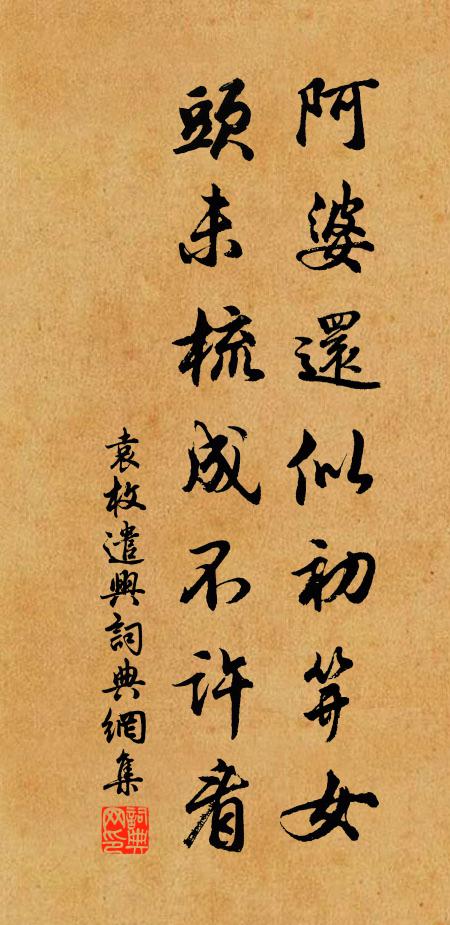 阿婆還似初笄女
頭未梳成不許看
袁枚遣興詞典網集
詞典网印